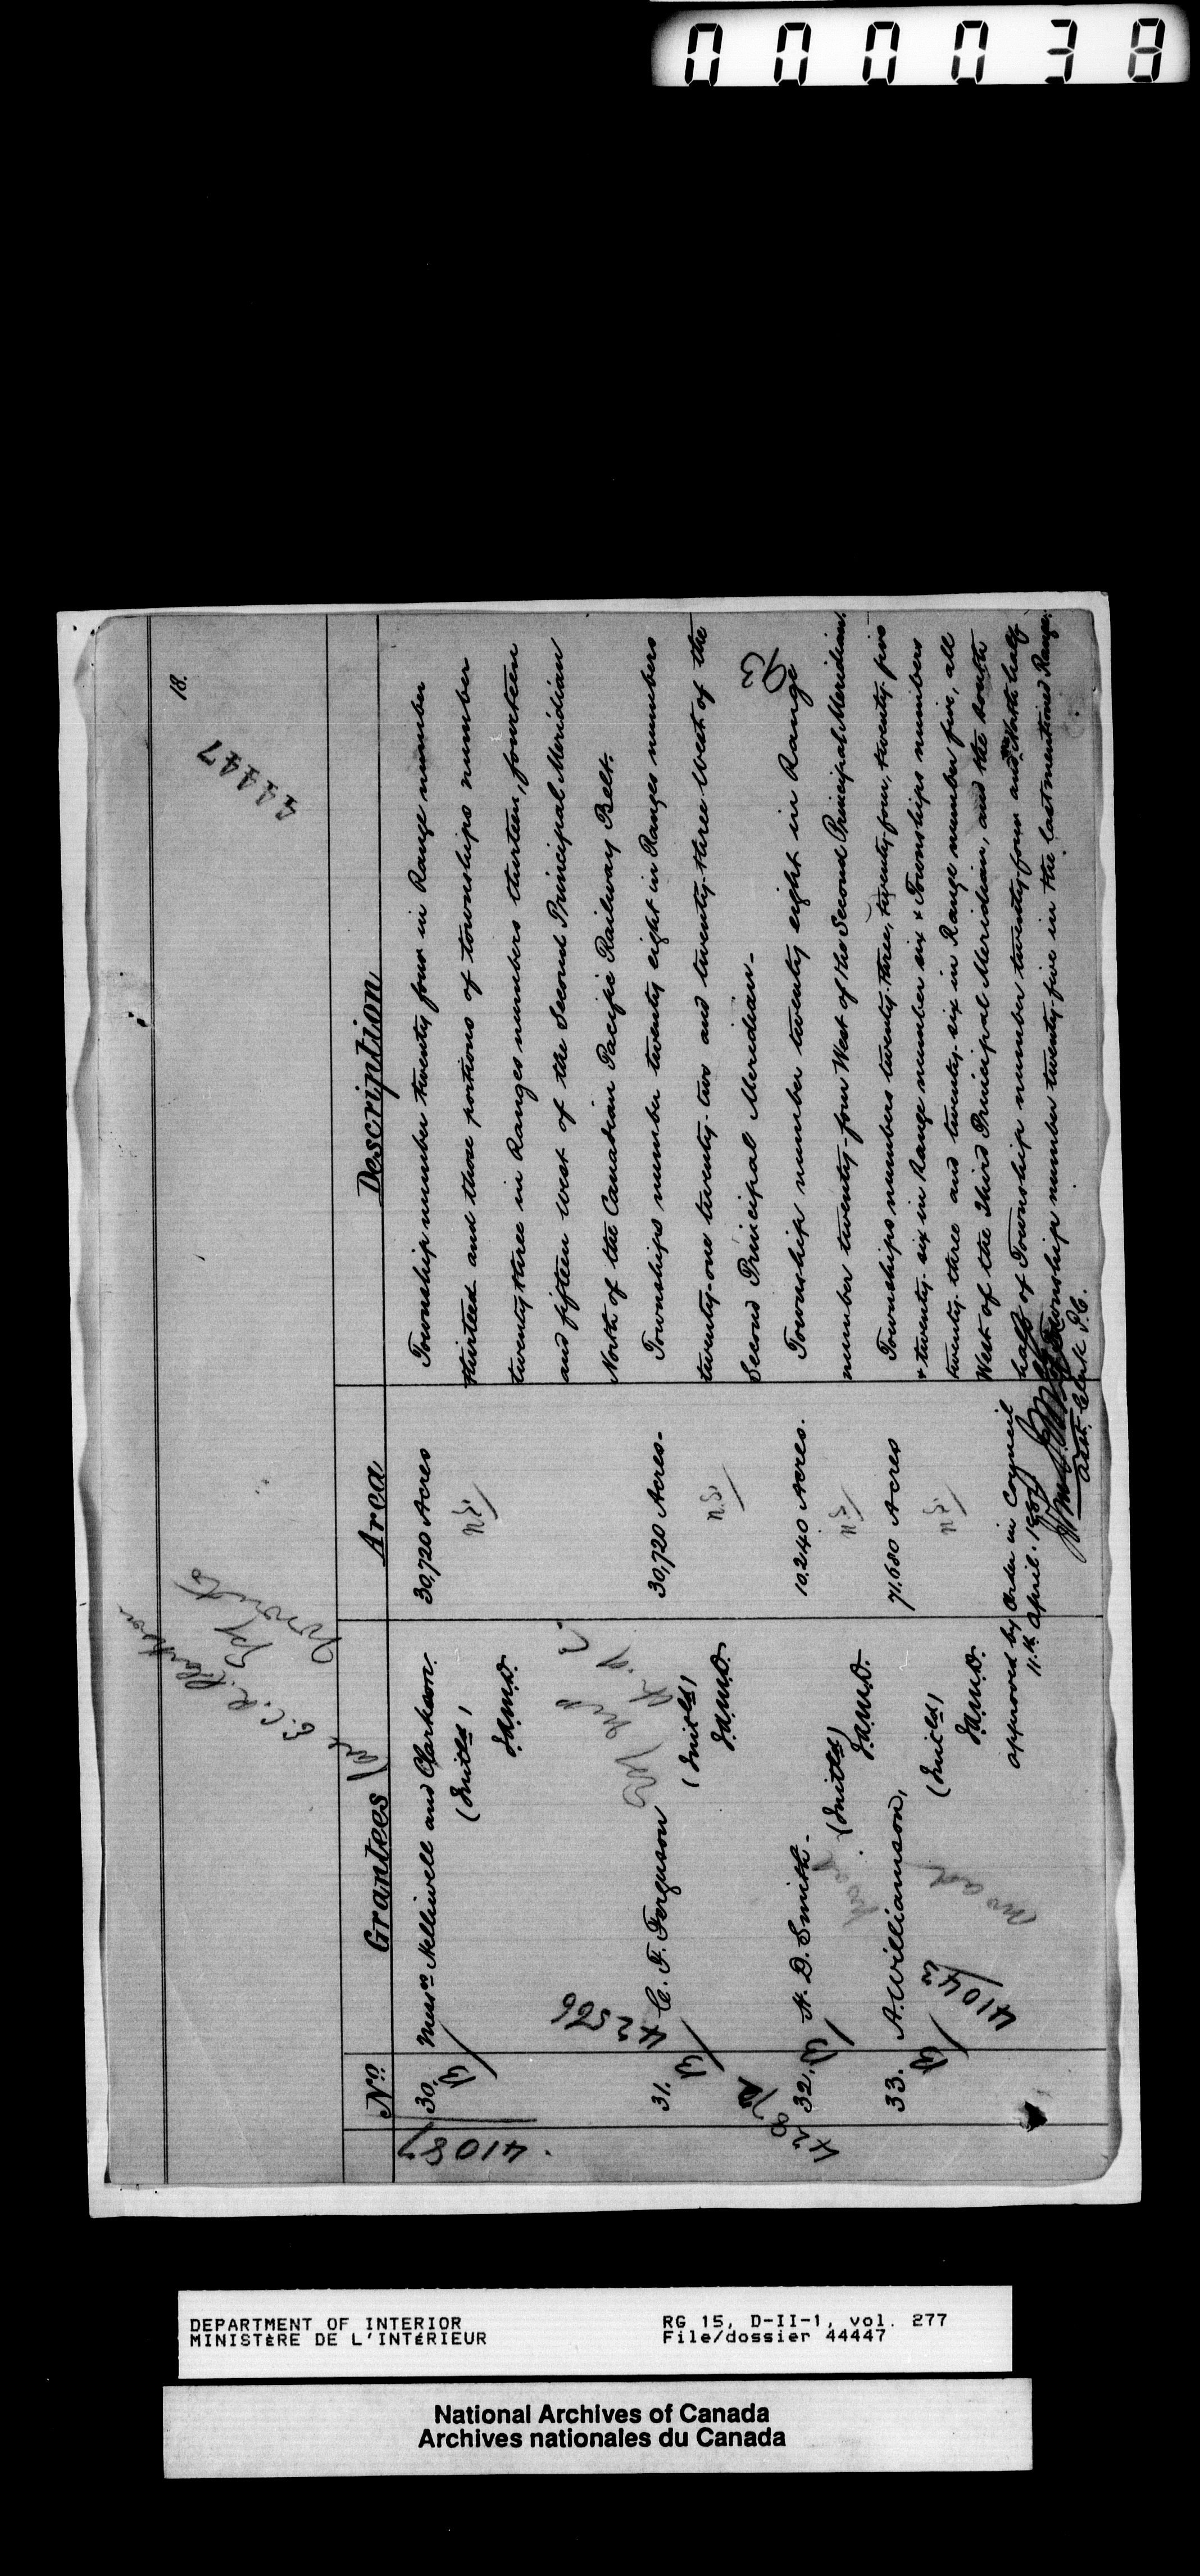 000038
18.
44447
E. C. R. Clarkson
Toronto
No. Grantees Area Description
41087
30. Messrs Helliwell and Clarkson. 30,720 Acres Township number twenty four in Range number
(Initld) thirteed and those portions of townships number
J.A.M.D. twenty three in Ranges numbers thirteen, fourteen
and fifteen west of the Second Principal Meridian
North of the Canadian Pacific Railway Belt.
42566
31. C. F. Ferguson 30,720 Acres- Townships number twenty eight in Ranges numbers
(Initld) twenty-one twenty-two and twenty-three West of the
J.A.M.D. Second Principal Meridian-
32. H. D. Smith- 10,240 Acres. Township number twenty eight in Range
(Initld) number twenty-four West of the Second Principal Meridian
J.A.M.D.
33. A. Williamson, 71,680 Acres Townships numbers twenty-three, twenty-four, twenty-five
(Initld) & twenty-six in Range number six & Townships numbers
J.A.M.D. twenty-three and twenty-six in Range number five, all
41043 West of the Third Principal Meridian, and the South
half of Township number twenty-four and the North half
of Township number twenty-five in the last mentioned Range.
Approved by Order in Council
11th April. 188
Asst. Clerk P.C.
DEPARTMENT OF INTERIOR RG 15, D-II-1, vol. 277
MINISTÈRE DE L'INTÉRIEUR File/dossier 44447
National Archives of Canada
Archives nationales du Canada